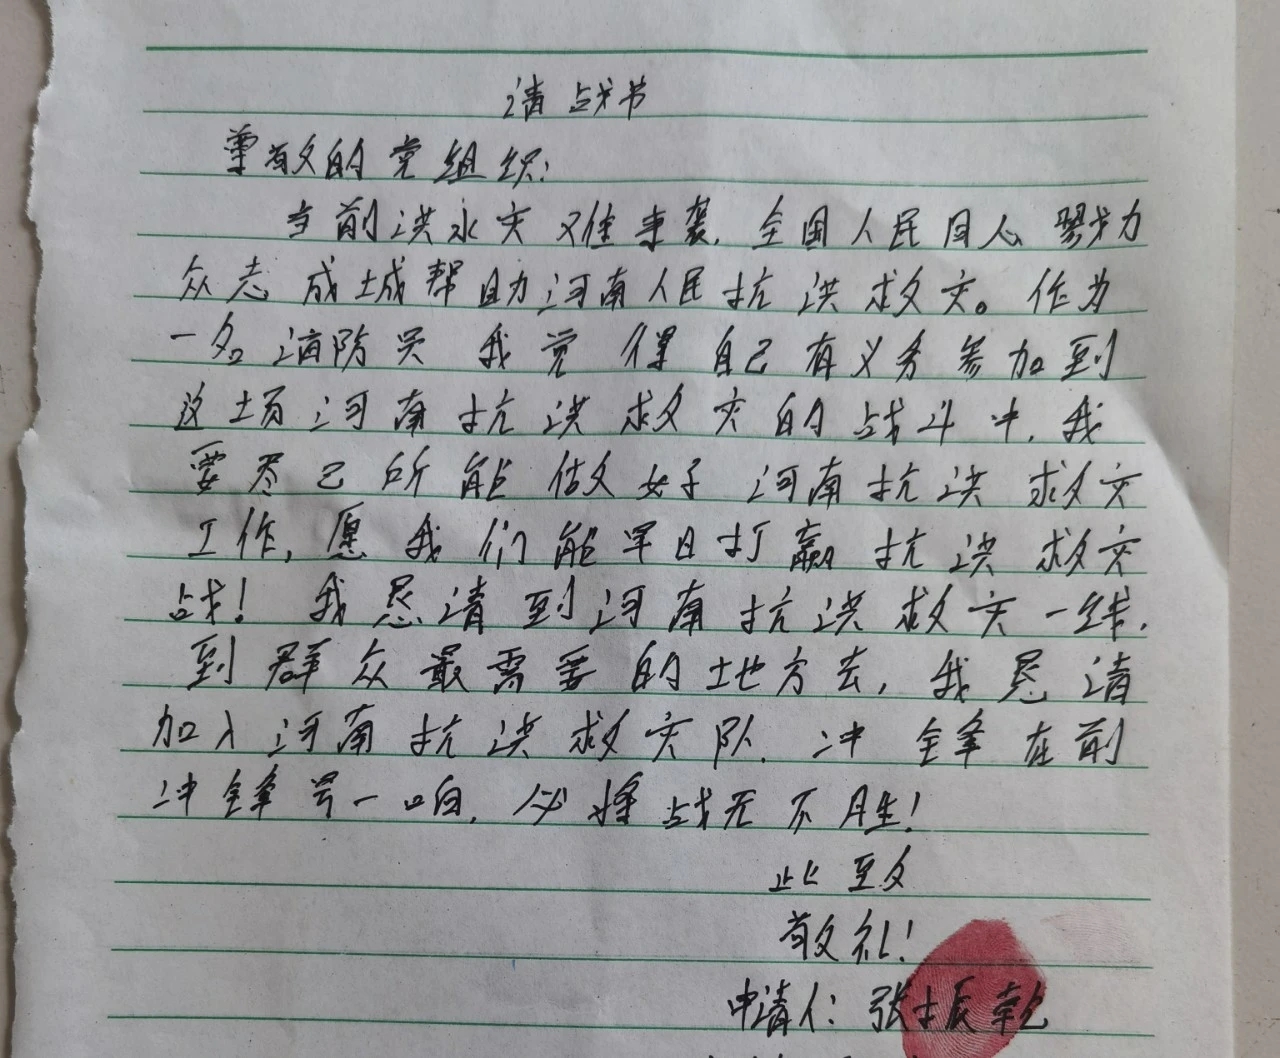 请战书
尊敬的党组织:
当前洪水灾难来袭,全国人民同心勠力
众志成城帮助河南人民抗洪救灾。作为
一名消防员我觉得自己有义务参加到
这场河南抗洪救灾的战斗中,我
要尽己所能做好河南抗洪救灾
工作,愿我们能早日打赢抗洪救灾
战!我恳请到河南抗洪救灾一线,
到群众最需要的地方去,我恳请
加入河南抗洪救灾队,冲锋在前
冲锋号一响,必将战无不胜!
此致
敬礼!
申请人:张振乾